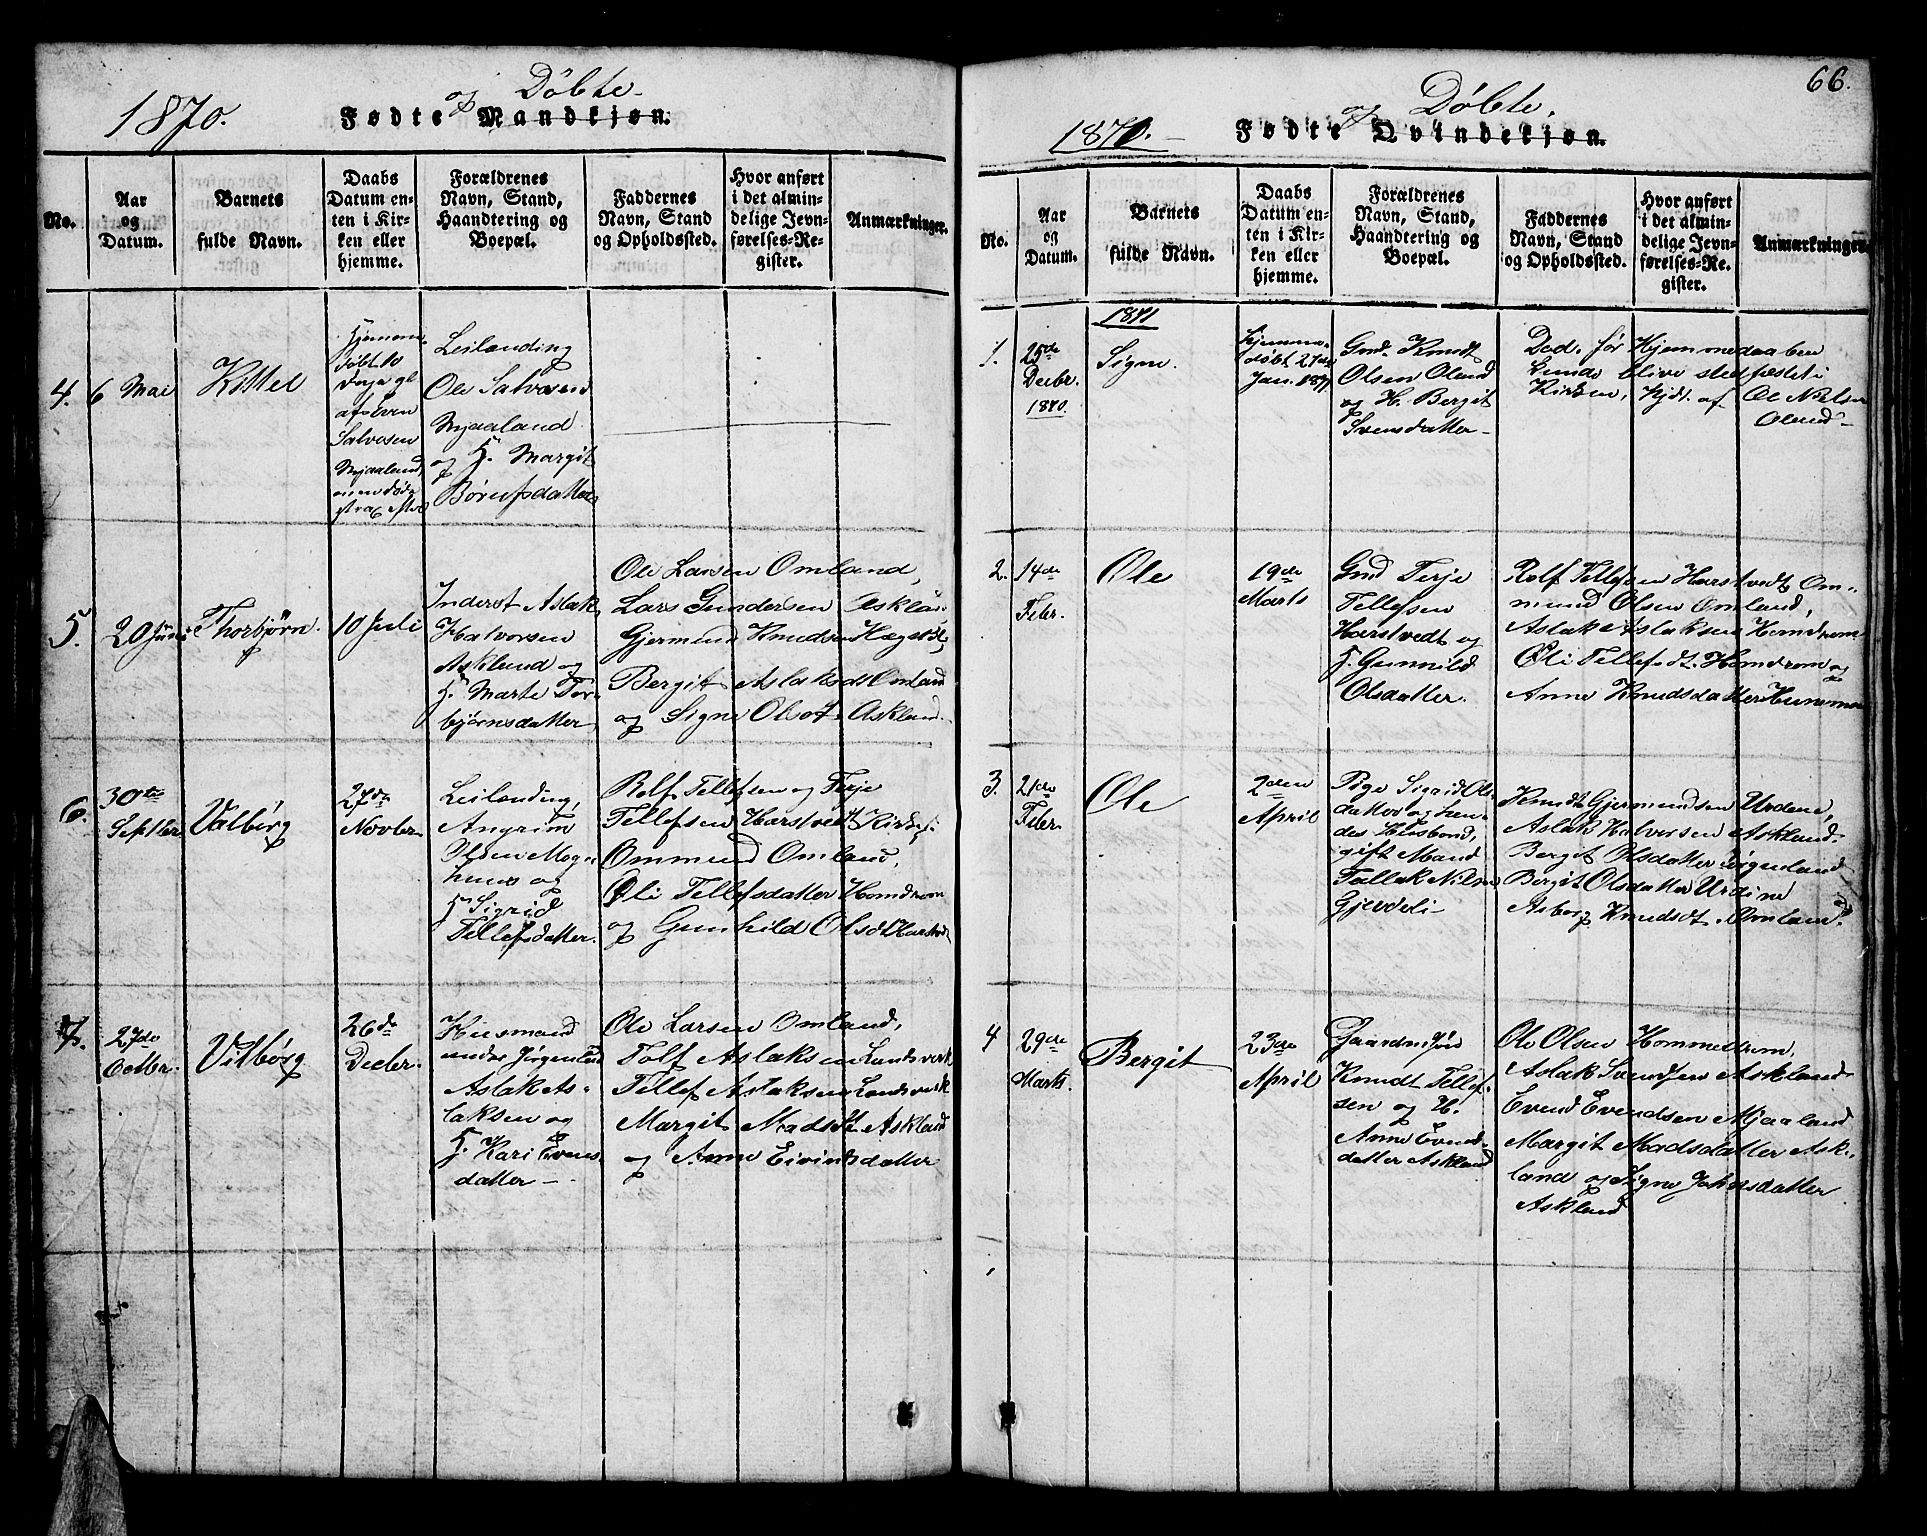 1870.
Fødte og Døbte.
Mandkjøn.
No.
Aar og Datum.
Barnets fulde Navn.
Daabs Datum enten i Kirken eller hjemme.
Forældrenes Navn, Stand, Haandtering og Boepæl.
Faddernes Navn, Stand og Opholdssted.
Hvor anført i det almindelige Jevnførelses-Register.
Anmærkninger.
4.
6 Mai
Kittel
Hjemme
døbt 10
Dage gl
af Even
Salvesen
Mjaaland,
men døde
strax efter
Leilænding
Ole Salvesen
Mjaaland
og H. Margit
Børufsdatter
5.
20 Juni
Thorbjørn.
10 Juli
Inderst Aslak
Halvorsen
Askland og
H. Marte Tor-
bjørnsdatter
Ole Larsen Omland,
Lars Gundersen Askland,
Gjermund Knudsen
Bergit Aslaksdt Omland
og Signe Olsdt. Askland.
6.
30te
Septbr
Valborg
27de
Novbr
Leilænding,
Angrim
Olsen
og
H Sigrid
Tellefsdatter.
Rolf Tellefsen og Terje
Tellefsen Harstvedt,
Ommund Omland,
Oli Tellefsdatter Homdrom
og Gunhild Olsdt Harstvedt
7.
27de
Octbr.
Vilbørg
26de
Decbr.
Huusmand
under Jørgenland
Aslak As-
laksen og
H. Kari Evens-
datter -
Ole Larsen Omland,
Tolf Aslaksen Landsverk
Tellef Aslaksen Landsverk
Margit Madsdt Askland
og Anne Eivindsdatter
66.
1871.
Fødte og Døbte.
Qvindekjøn.
No.
Aar og Datum.
Barnets fulde Navn.
Daabs Datum enten i Kirken eller hjemme.
Forældrenes Navn, Stand, Haandtering og Boepæl.
Faddernes Navn, Stand og Opholdssted.
Hvor anført i det almindelige Jevnførelses-Register.
Anmærkninger.
1871
1.
25de
Decbr.
1870.
Signe.
Hjemme-
døbt 27de
Jan. 1871
Gmd. Knudt
Olsen Oland
og H. Bergit
Svensdatter -
Død før Hjemmedaaben
kunde blive stadfæstet i
Kirken, Hjdt. af Ole Nielsen
Oland -
2.
14de
Febr.
Ole
19de
Marts
Gmd Terje
Tellefsen
Harstvedt og
H. Gunnild
Olsdatter.
Rolf Tellefsen Harstvedt Om-
mund Olsen Omland,
Aslak Aslaksen Homdrom
Oli Tellefsdt. Homdrom og
Anne Knudsdatter
3.
21de
Febr
Ole
2den
April
Pige Sigrid Ols-
datter og hen-
des Husbond,
gift Mand
Tallak Nilsen
Gjevdeli -
Knudt Gjermundsen Urdene,
Aslak Halvorsen Askland.
Bergit Olsdatter Jørgenland
Bergit Olsdatter Urdine
Asborg Knudsdt. Omland.
4
29de
Marts.
Bergit
23de
April
Gaardm
Knudt Tellef-
sen og H.
Anne Evends-
datter Askland
Ole Olsen Hommeldrom,
Aslak Svendsen Askland
Evend Evendsen Mjaaland
Margit Madsdatter Ask-
land og Signe Johnsdatter
Askland